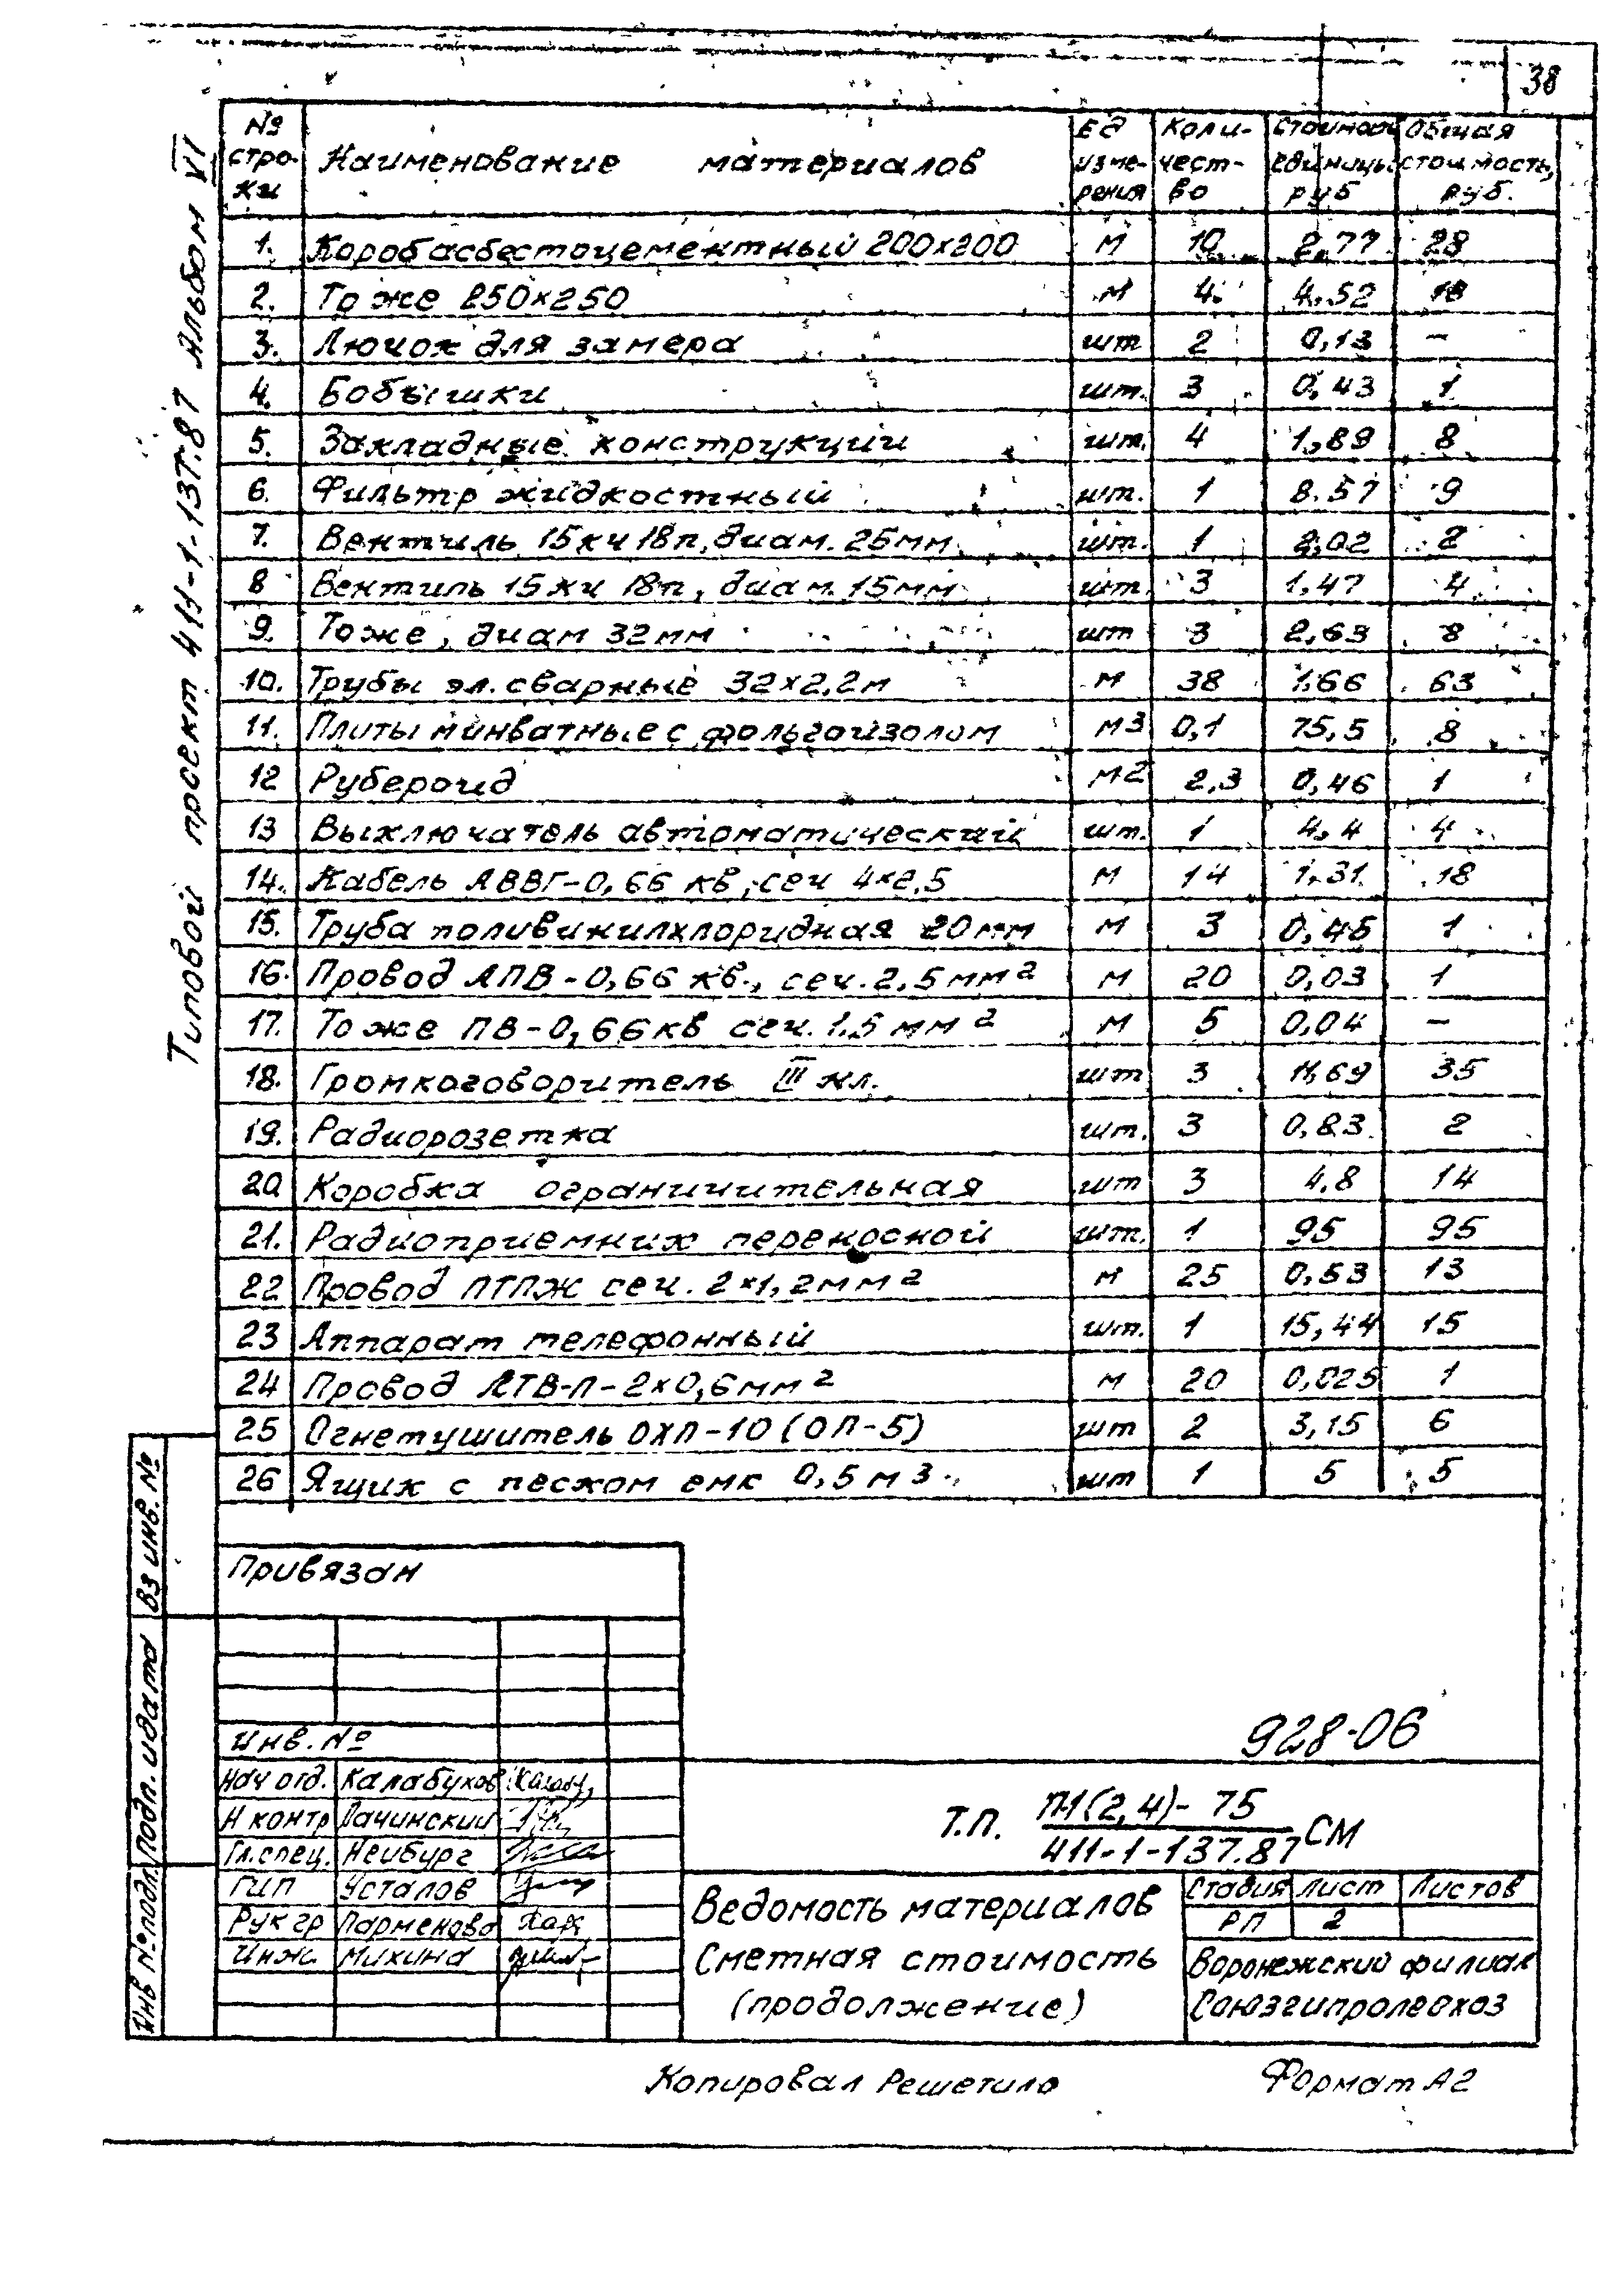 38
Типовой проект 411-1-137.87 Альбом VI
№ строки Наименование материалов Ед измерения Количество Стоимость единицы руб Общая стоимость, руб.
1. Короб асбестоцементный 200×200 м 10 2,77 28
2. То же 250×250 м 4 4,52 18
3. Лючок для замера шт 2 0,13 –
4. Бобышки шт. 3 0,43 1
5. Закладные конструкции шт. 4 1,89 8
6. Фильтр жидкостный шт. 1 8.57 9
7. Вентиль 15кч18п, диам. 25мм шт. 1 2,02 2
8 Вентиль 15кч 18п, диам. 15мм шт. 3 1,47 4
9. То же, диам 32мм шт 3 2,63 8
10. Трубы эл. сварные 32×2,2м м 38 1,66 63
11. Плиты минватные с фольгоизолом м3 0,1 75,5 8
12 Рубероид м2 2,3 0,46 1
13 Выключатель автоматический шт. 1 4,4 4
14. Кабель АВВГ-0,66 кв, сеч 4×2,5 м 14 1,31 18
15. Труба поливинилхлоридная 20мм м 3 0,45 1
16. Провод АПВ-0,66 кв., сеч. 2,5мм2 м 20 0,03 1
17. То же ПВ-0,66кв сеч. 1,5мм2 м 5 0,04 –
18. Громкоговоритель III кл. шт 3 11,69 35
19. Радиорозетка шт. 3 0,83 2
20 Коробка ограничительная шт 3 4,8 14
21. Радиоприемник переносной шт. 1 95 95
22 Провод ПТПЖ сеч. 2×1,2мм2 м 25 0,53 13
23 Аппарат телефонный шт. 1 15,44 15
24 Провод ЛТВ-П-2×0,6мм2 м 20 0,025 1
25 Огнетушитель ОХП-10 (ОП-5) шт 2 3,15 6
26 Ящик с песком емк 0,5м3 шт 1 5 5
Вз инв. №
Подп. и дата
Инв № подл.
Привязан
Инв. №
928-06
Нач отд. Калабухов
Н контр Вачинский
Гл. спец. Нейбург
ГИП Усталов
Рук гр Парменова
Инж. Михина
Т.П. П-1(2,4)-75
411-1-137.87 СМ
Ведомость материалов
Сметная стоимость
(продолжение)
Стадия Лист Листов
РП 2
Воронежский филиал
Союзгипролесхоз
Копировал Решетило Формат А2